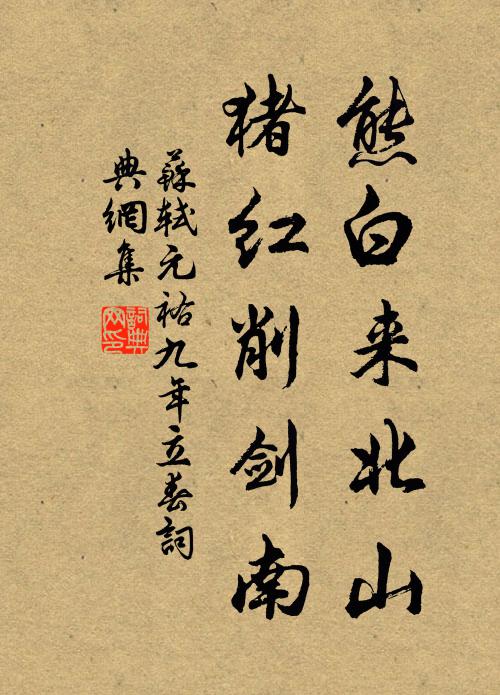 熊白来北山
猪红削剑南
蘇軾元祐九年立春詞
典網集
詞典
网印